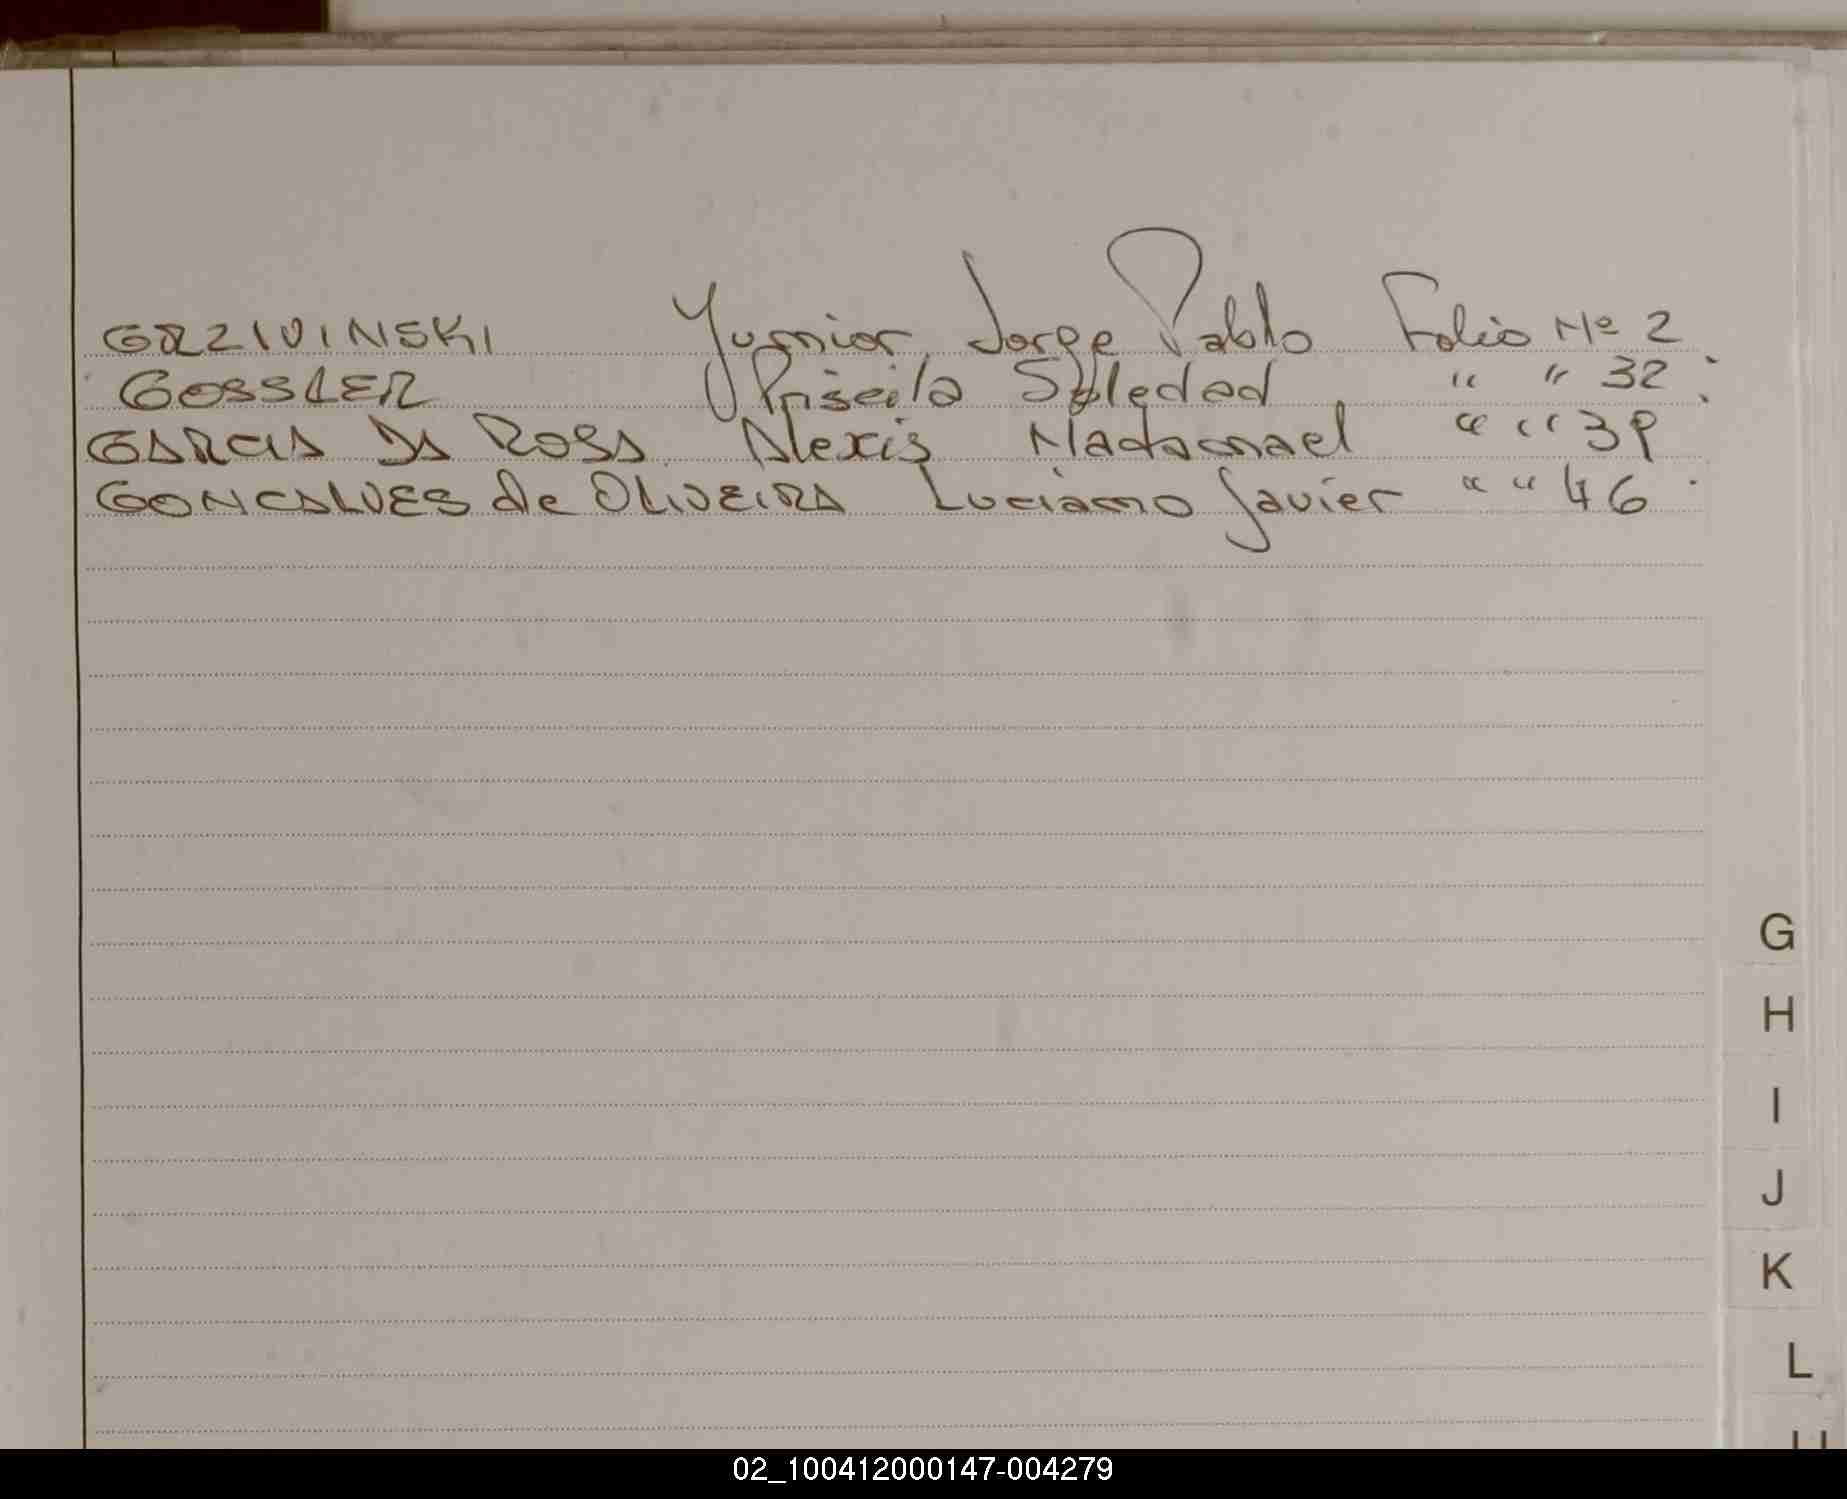 GRZIVINSKI Yunior Jorge Pablo Folio Nº 2
GOSSLER Priscila Soledad " " 32
GARCIA DA ROSA Alexis Natanael " " 39
GONCALVES de OLIVEIRA Luciano Javier " " 46
G
H
I
J
K
L
02_100412000147-004279